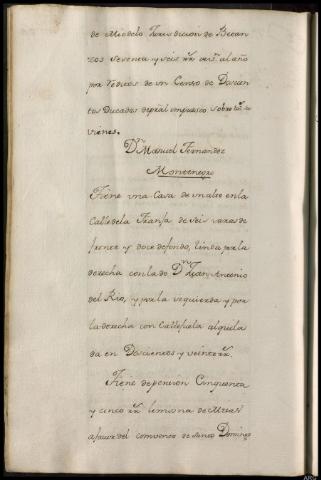 de Miodelo Jurisdicion de Betan
zos setenta y seis rr.s vn.s al año
por reditos de un Censo de Doscien
tos Ducados de pral impuesto sobre tos. sus
vienes.
Dn Manuel Fernandez
Montenegro
Tiene una Casa de un alto en la
Calle de la Franja de seis varas de
frente y doce de fondo, linda por la
derecha con la de Dn. Juan Antonio
del Rio, y por la yzquierda y por
la derecha con Callejuela alquila
da en Doscientos y veinte rr.
Tiene de pension Cinquenta
y cinco rr. limosna de Misas
a favor del convento de Santo Domingo